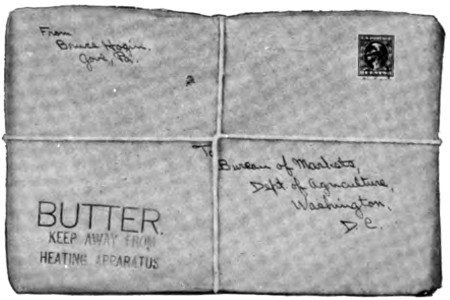 From
Bruce
Pa.
To
Bureau of Markets,
Dept of Agriculture,
Washington,
D. C.
BUTTER.
KEEP AWAY FROM
HEATING APPARATUS